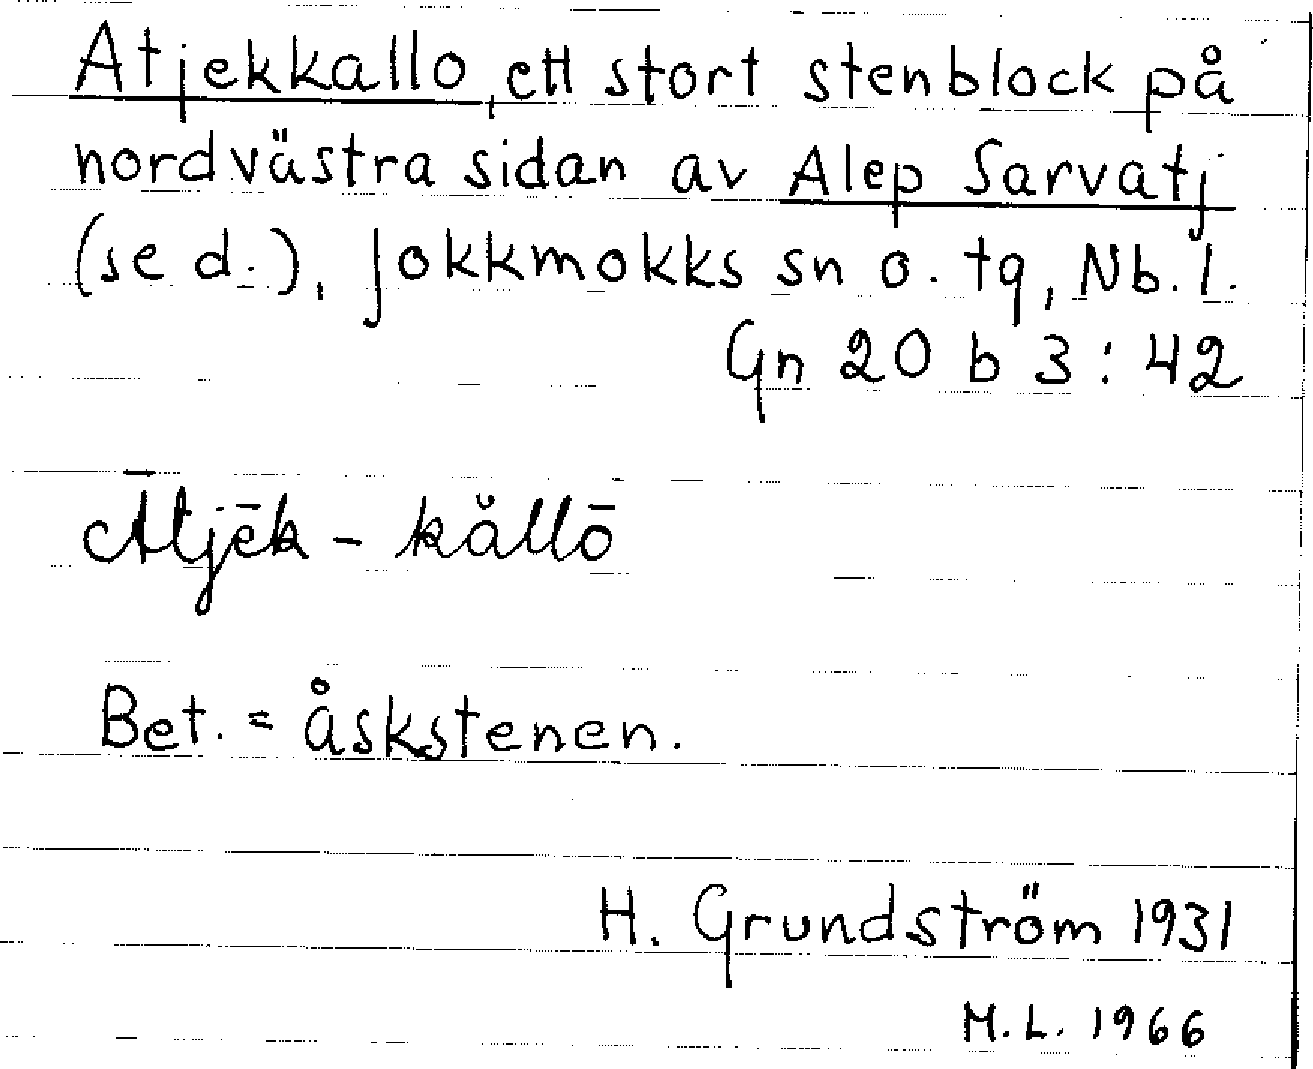 Atjekkallo, ett stort stenblock på
nordvästra sidan av Alep Sarvatj
(se d.), Jokkmokks sn o. tg, Nb. l.
Gn 20 b 3:42
Ātjēk - kållō
Bet. = åskstenen.
H. Grundström 1931
M.L. 1966